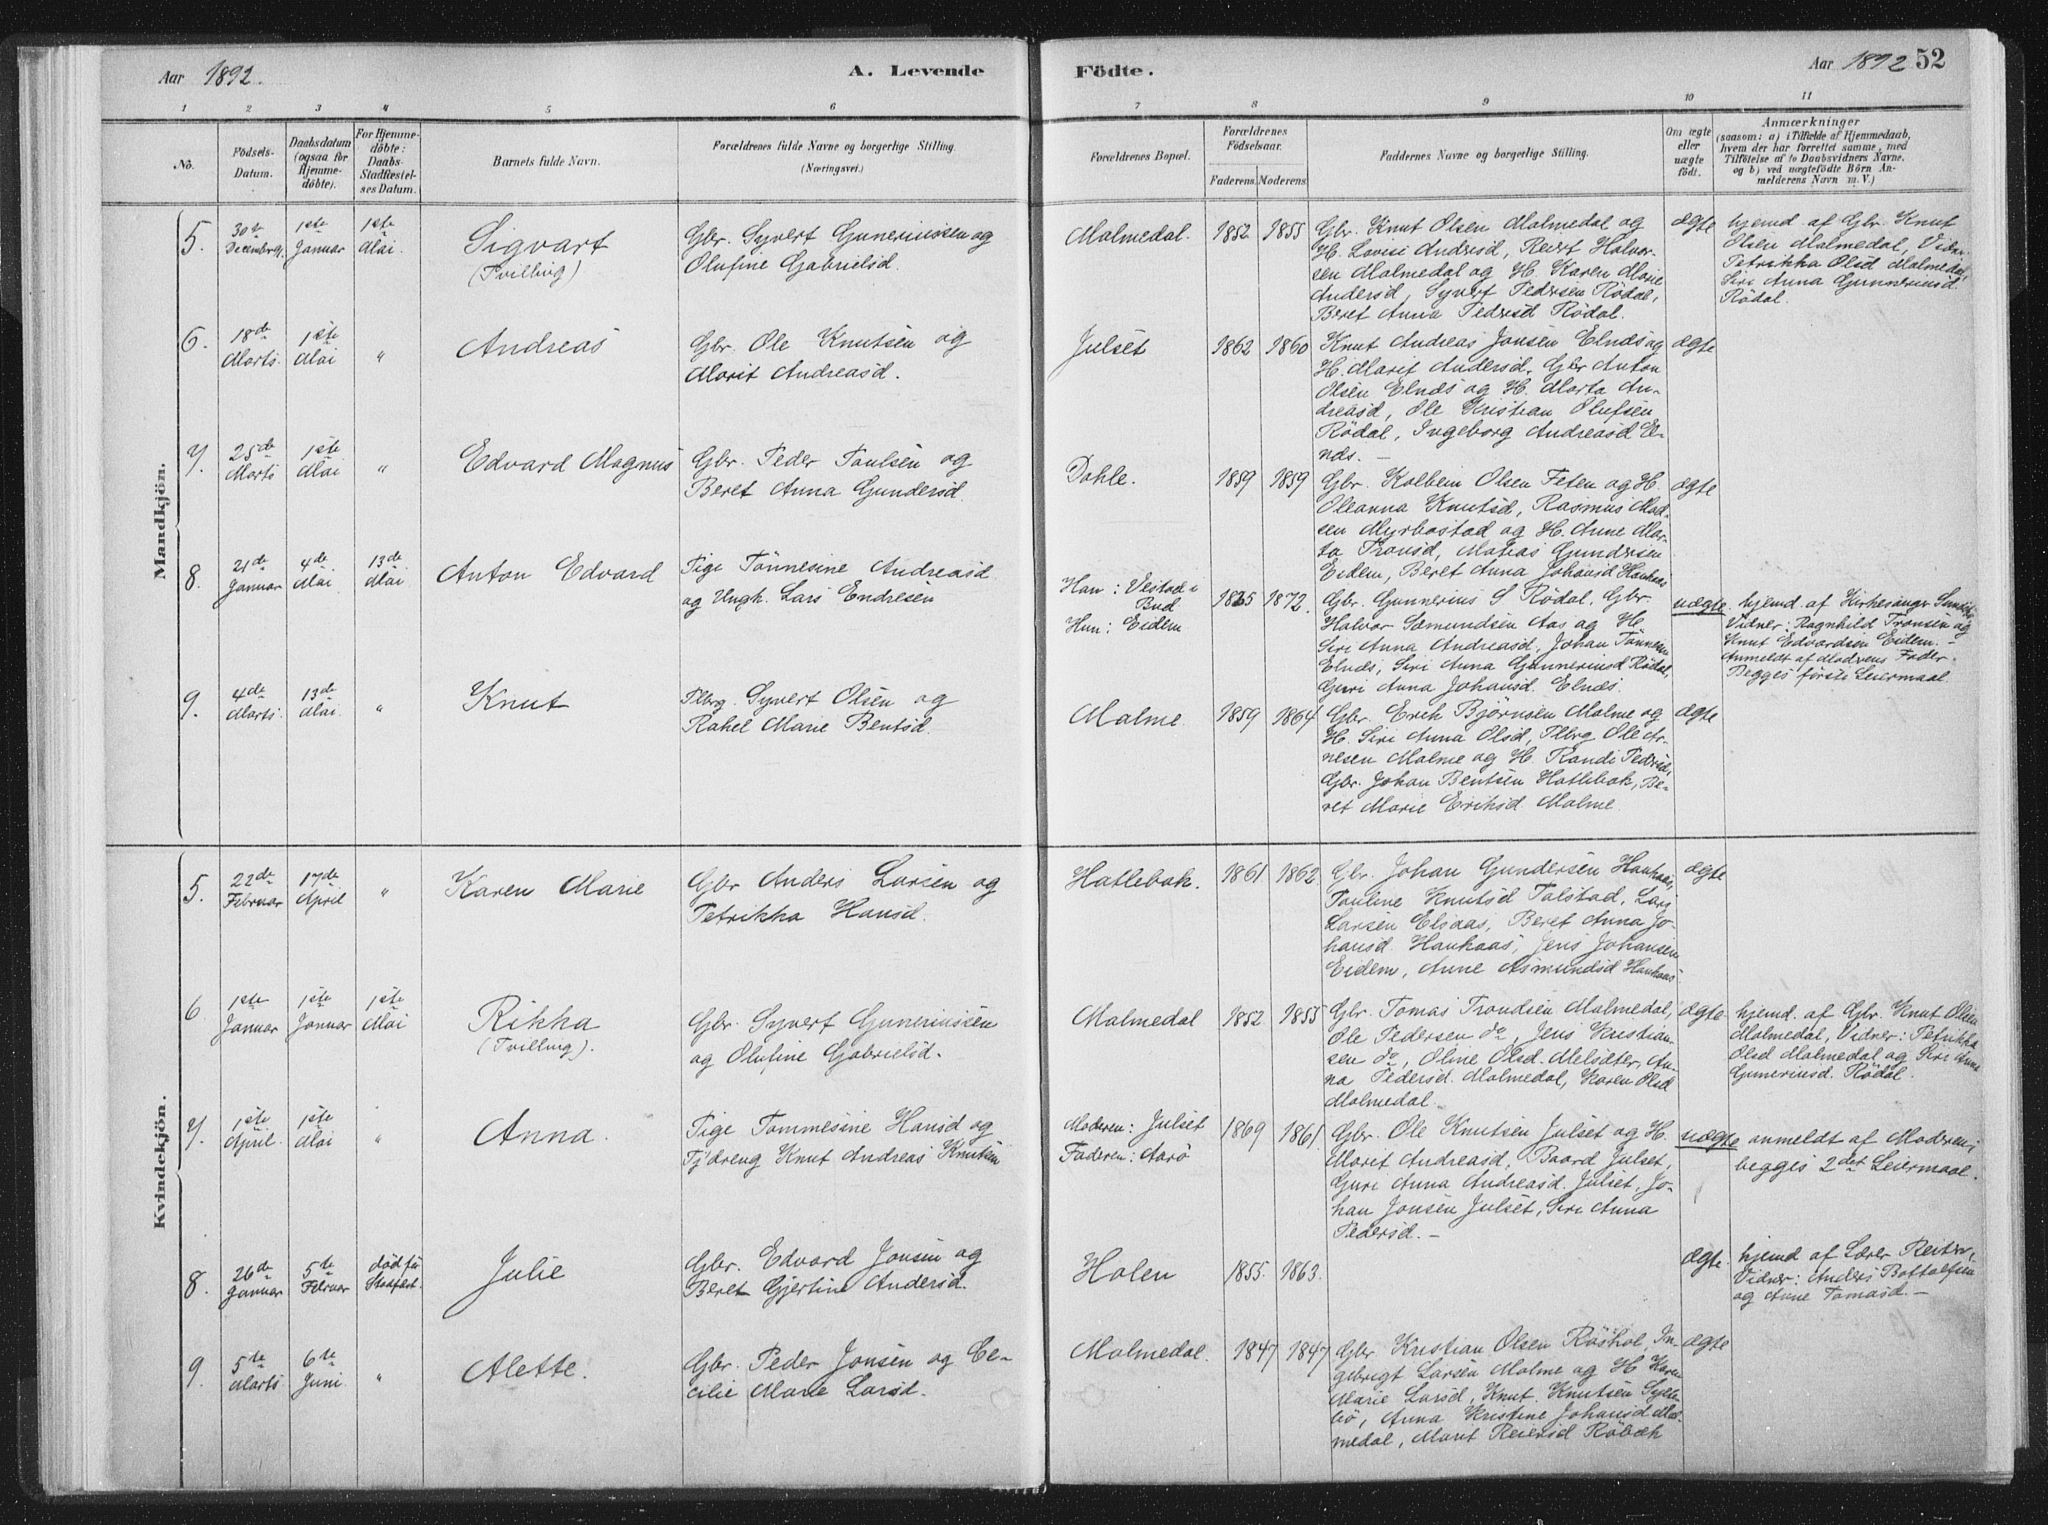 Aar 1892.
A. Levende
Födte.
Aar 1892 52
1 2 3 4 5 6 7 8 9 10 11
No.
Födsels-Datum.
Daabsdatum (ogsaa for Hjemme-döbte).
For Hjemme-döbte: Daabs-Stadfæstel-ses Datum.
Barnets fulde Navn.
Forældrenes fulde Navne og borgerlige Stilling. (Næringsvei.)
Forældrenes Bopæl.
Forældrenes Födselsaar. Faderens. Moderens.
Faddernes Navne og borgerlige Stilling.
Om ægte eller uægte födt.
Anmærkninger
(saasom: a) i Tilfælde af Hjemmedaab,
hvem der har forrettet samme, med
Tilföielse af to Daabsvidners Navne.
og b) ved uægtefödte Börn An-
melderens Navn m. V.)
Mandkjön.
5.
30te Decemberg.
1ste Januar
1ste Mai.
Sigvart
(Tvilling)
Gbr. Syvert Gunneriussen og
Olufine Gabrielsd.
Malmedal.
1852 1855
Gbr. Knut Olsen Malmedal og
H. Lovise Andersd, Beret Halvor-
sen Malmedal og H. Karen Marie
Andersd, Syvert Pedersen Rödal,
Beret Anna Pedersd Rödal.
ægte
hjemd. af Gbr. Knut
Olsen Malmedal, Vidn:
Petrikka Olsd Malmedal,
Siri Anna Gunneriusd
Rödal.
6.
18de Marts.
1ste Mai
"
Andreas
Gbr. Ole Knutsen og
Marit Andreasd.
Julset
1862 1860
Knut Andreas Jonsen Elnæs og
H. Marit Andersd, Gbr Anton
Olsen Elnæs og H. Marta An-
dreasd, Ole Kristian Olufsen
Rödal, Ingeborg Andreasd El-
næs. —
ægte
7.
25de Marts
1ste Mai
"
Edvard Magnus
Gbr. Peder Paulsen og
Beret Anna Gundersd.
Dahle.
1859 1859
Gbr. Kolbein Olsen Feten og H.
Oleanna Knutsd, Rasmus Mad-
sen Myrbostad og H. Anne Mar-
ta Tronsd, Matias Gundersen
Eidem, Beret Anna Johansd Haukaas
ægte
8.
21de Januar
4de Mai
13de Mai
Anton Edvard
Pige Tönnesine Andreasd
og Ungk. Lars Endresen
Han: Vestad i
Bud
Hun: Eidem
1865 1872.
Gbr. Gunnerius S Rödal, Gbr.
Halvor Sæmundsen Aas og H.
Siri Anna Andreasd, Johan Tönnesen
Elnæs, Siri Anna Gunneriusd Rödal,
Guri Anna Johansd. Elnæs.
uægte
hjemd. af Kirkesanger
Vidner: Ragnhild Tronsen og
Knut Edvardsen Eidem. —
Anmeldt af Modrens Fader.
Begges förste Leiermaal
9.
4de Marts.
13de Mai.
"
Knut
Plbrg. Syvert Olsen og
Rahel Marie Bentsd.
Malme.
1859 1864
Gbr. Erik Björnsen Malme og
H. Siri Anna Olsd, Plbrg Ole Ar-
nesen Malme og H. Randi Pedersd,
Gbr. Johan Bentsen Hatlebak, Be-
ret Marie Eriksd Malme.
ægte
Kvindekjön.
5.
22de Februar
17de April
"
Karen Marie
Gbr Anders Larsen og
Petrikka Hansd.
Hatlebak.
1861 1862.
Gbr. Johan Gundersen Haukaas,
Pauline Knutsd Talstad, Lars
Larsen Elsaas, Beret Anna Jo-
hansd. Haukaas, Jens Johansen
Eidem, Anne Asmundsd Haukaas
ægte
6
1ste Januar
1ste Januar
1ste Mai
Rikka
(Tvilling).
Gbr. Syvert Gunneriussen
og Olufine Gabrielsd.
Malmedal
1852 1855
Gbr. Tomas Trondsen Malmedal,
Ole Pedersen do, Jens Kristian-
sen do, Oline Olsd. Melsæter, An-
na Pedersd. Malmedal, Karen Olsd
Malmedal.
ægte
hjemd. af Gbr. Knut Olsen
Malmedal, Vidner: Petrikka
Olsd Malmedal og Siri Anna
Gunneriusd. Rödal.
7.
1ste April.
1ste Mai
"
Anna.
Pige Tommesine Hansd og
Tj.dreng Knut Andreas Knutsen
Moderen: Julset
Faderen: Aarö
1869 1861.
Gbr. Ole Knutsen Julset og H.
Marit Andreasd, Baard Julset,
Guri Anna Andreasd. Julset, Jo-
han Jonsen Julset, Siri Anna
Pedersd. —
uægte
anmeldt af Moderen;
begges 2det Leiermaal.
8.
26de Januar
5te Februar
död för Stadfæst.
Julie
Gbr. Edvard Jonsen og
Beret Gjertine Andersd.
Holen
1855. 1863.
ægte.
hjemd af Lærer Reiten,
Vidner: Anders Bottolfsen
og Anne Tomasd. —
9.
5te Marts
6te Juni.
"
Alette.
Gbr. Peder Jonsen og Ce-
cilie Marie Larsd.
Malmedal.
1847 1847
Gbr. Kristian Olsen Röshol, In-
gebrigt Larsen Malme og H Karen
Marie Larsd, Knut Knutsen Sylte-
bö, Anna Kristine Johansd Mal-
medal, Marit Reiersd Röbæk
ægte